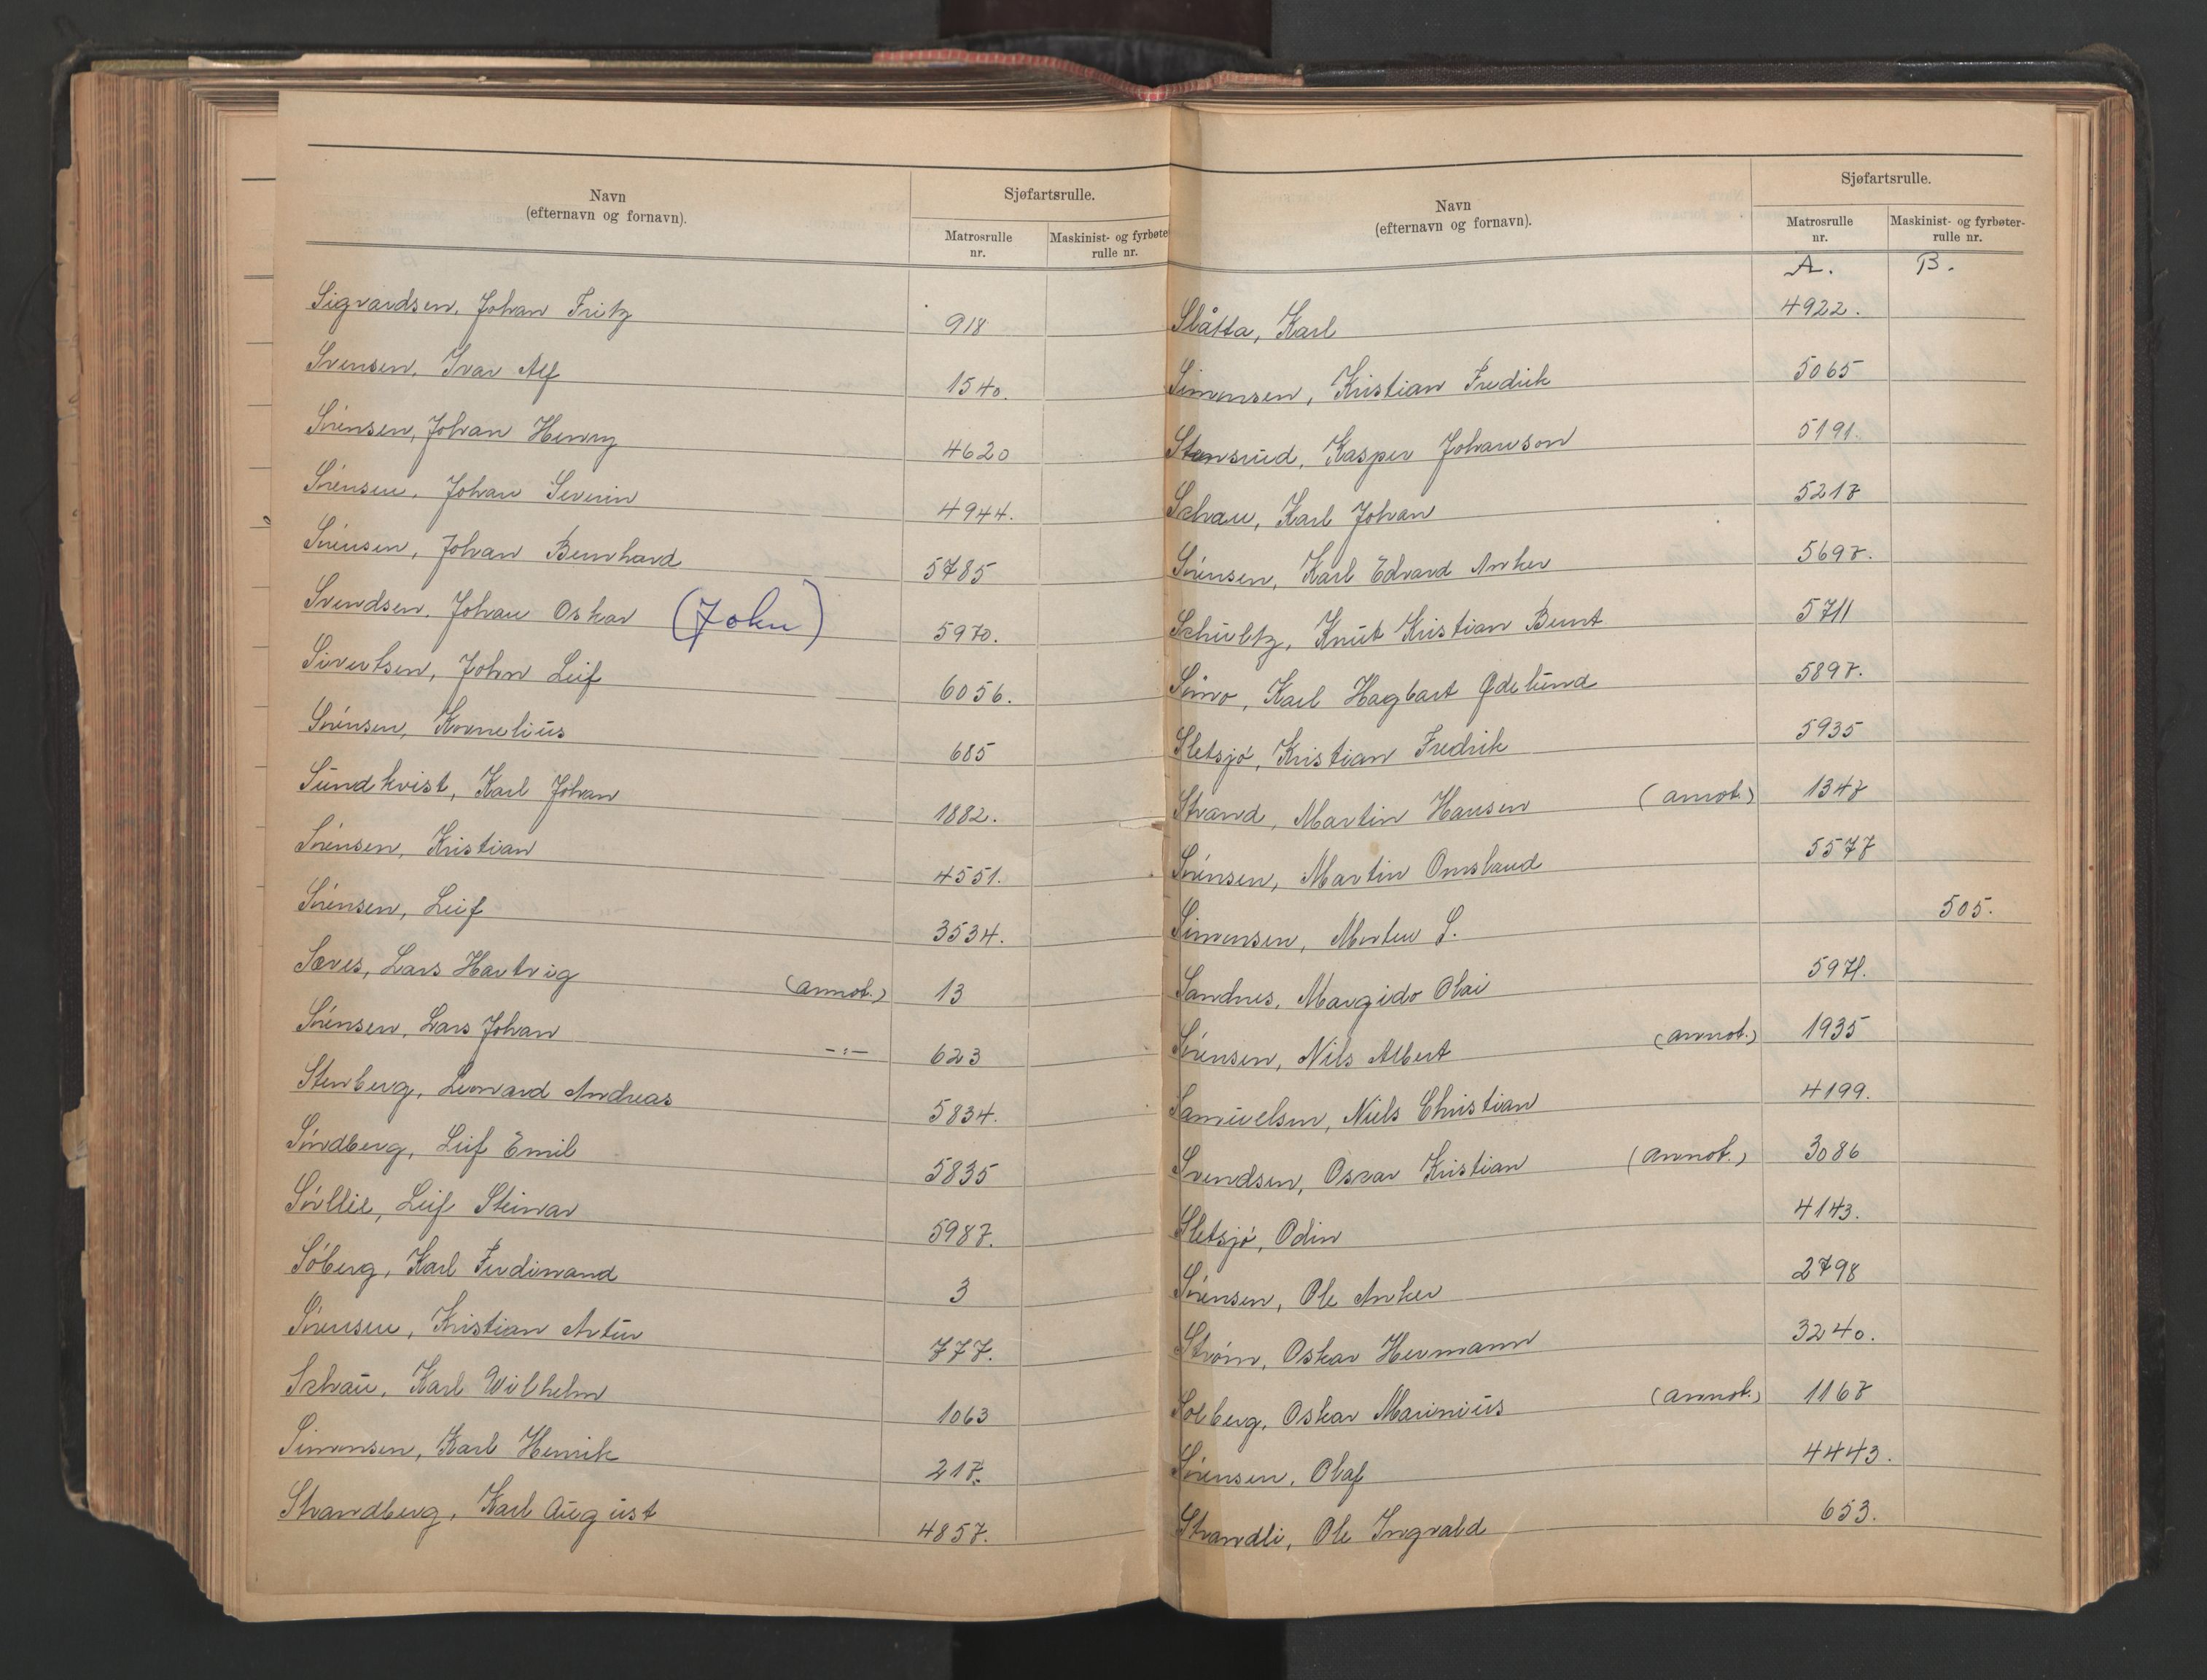 Navn
(efternavn og fornavn).
Sjøfartsrulle.
Matrosrulle nr.
Maskinist- og fyrbøte rulle nr.
Sigvardsen, Johan Fritz 918
Svensen, Ivar Alf 1540.
Sørensen, Johan Henry 4620
Sørensen, Johan Severin 4944.
Sørensen, Johan Bernhard 5785
Svendsen, Johan Oskar (John) 5970.
Sivertsen, John Leif 6056.
Sørensen, Kornelius 685
Sundkvist, Karl Johan 1882.
Sørensen, Kristian 4551.
Sørensen, Leif 3534.
Sæves, Lars Hartvig (annot.) 13
Sørensen, Lars Johan -:- 623
Stenberg, Leonard Andreas 5834.
Sundberg, Leif Emil 5835
Sørllie, Leif Steinar 5987.
Søberg, Karl Ferdinand 3
Sørensen, Kristian Artur 777.
Schau, Karl Wilhelm 1063
Simonsen, Karl Henrik 217.
Strandberg, Karl August 4857.
Navn
(efternavn og fornavn).
Sjøfartsrulle.
Matrosrulle nr.
Maskinist- og fyrbøter- rulle nr.
A. B.
Slåtta, Karl 4922.
Simonsen, Kristian Fredrik 5065
Stensrud, Kasper Johanson 5191.
Schau, Karl Johan 5217
Sørensen, Karl Edvard Anker 5697.
Schultz, Knut Kristian Bernt 5711
Simo, Karl Hagbart Ødelund 5897.
Sletsjø, Kristian Fredrik 5935
Strand, Martin Hansen (annot.) 1347
Sørensen, Martin Omsland 5577
Simonsen, Morten S. 505.
Sandnes, Margido Olai 5971.
Sørensen, Nils Albert (annot.) 1935
Samuelsen, Niels Christian 4199.
Svendsen, Oscar Kristian (annot.) 3086
Sletsjø, Odin 4143.
Sørensen, Ole Anker 2798
Strøm, Oskar Hermann 3240.
Solberg, Oskar Marinius (annot.) 1167
Sørensen, Olaf 4443.
Strandli, Ole Ingvald 653.